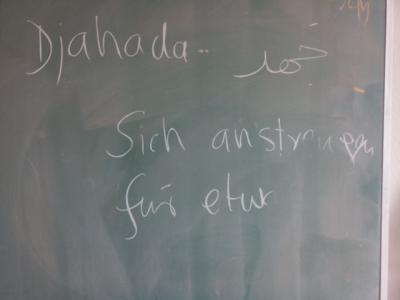 Djahada.. جهد
Sich anstrengen
für etw